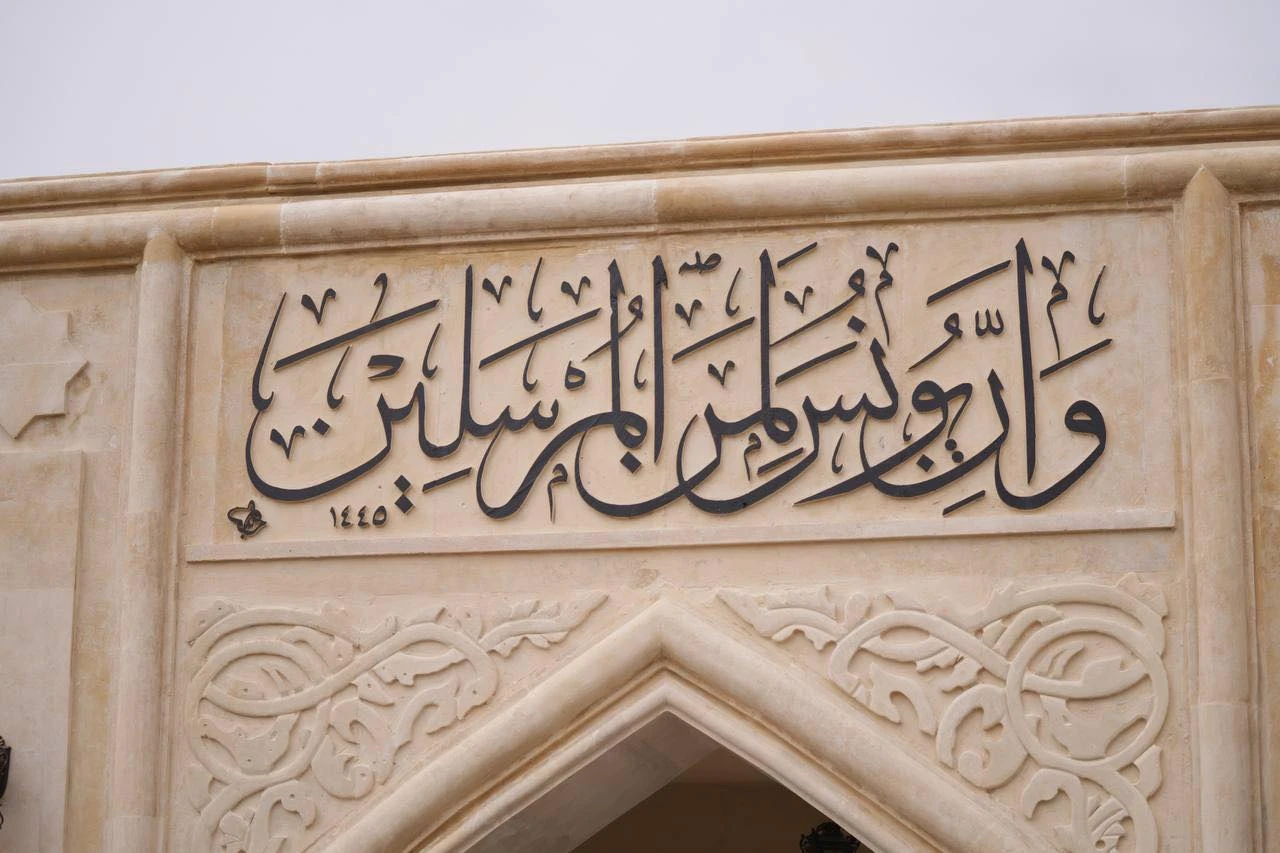 وَإِنَّ يُونُسَ لَمِنَ الْمُرْسَلِينَ
١٤٤٥